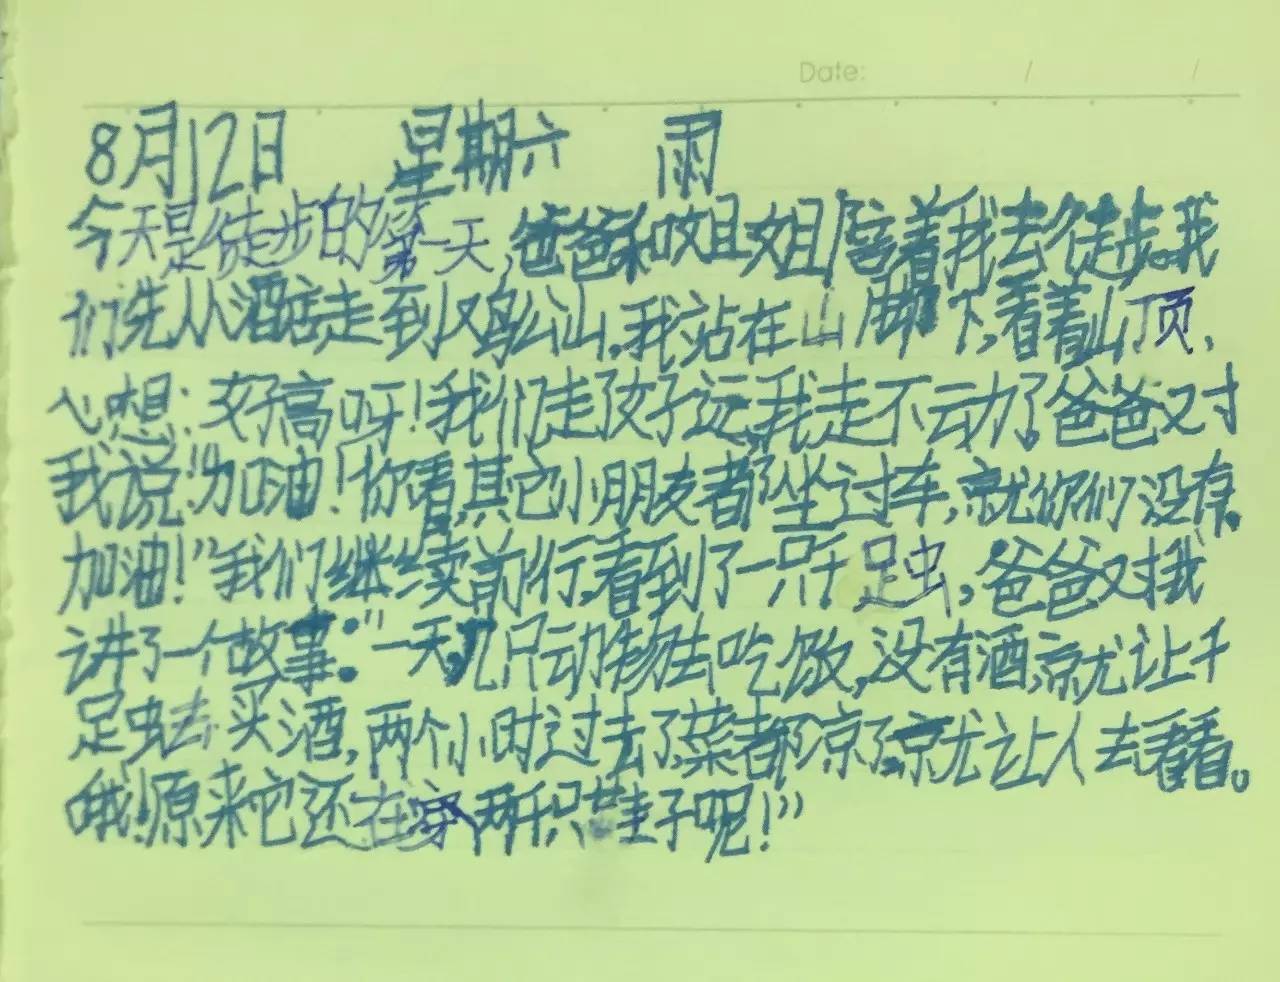 Date: / /
8月12日 星期六 雨
今天是徒步的第一天,爸爸和咬姐姐陪着我去徒步。我
们先从酒店走到鸡公山,我站在山脚下,看着山顶,
心想:好高呀!我们走了好远,我走不动了。爸爸又对
我说:"加油!你看,其它小朋友都坐过车,就你们没有。
加油!"我们继续前行,看到了一只千足虫,爸爸又对我
讲了一个故事:"一天,几只动物去吃饭,没有酒,就让千
足虫去买酒,两个小时过去了,菜都凉了,就让人去看看。
哦!原来它还在穿两千只鞋子呢!"